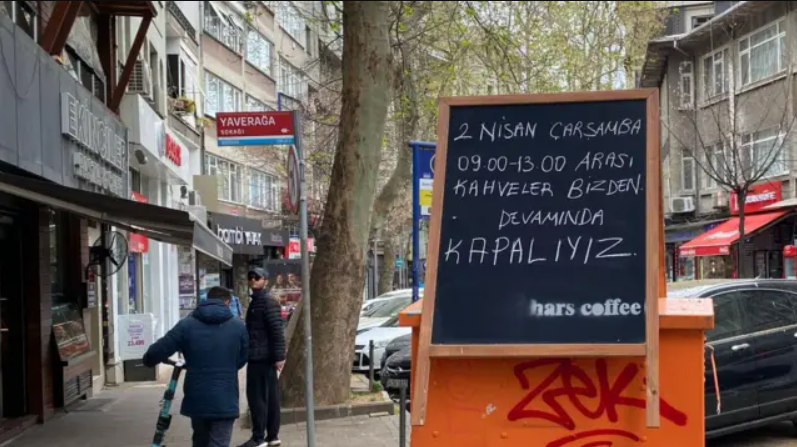 YAVERAĞA
SOKAĞI
2 NİSAN ÇARŞAMBA
09.00-13.00 ARASI
KAHVELER BİZDEN.
DEVAMINDA
KAPALIYIZ.
hars coffee
Zeki